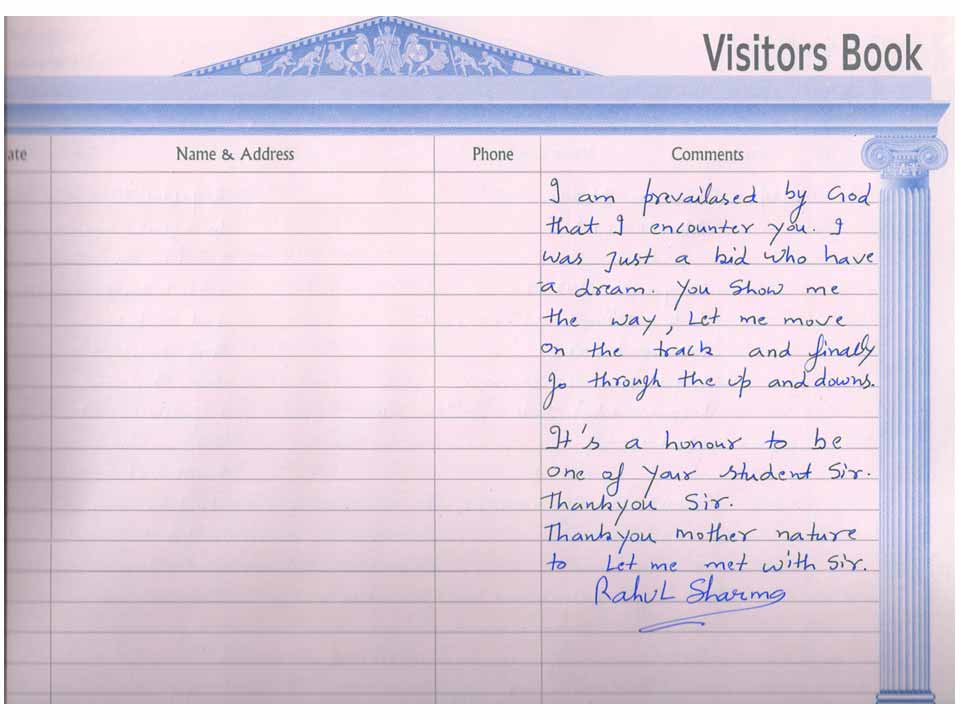 Visitors Book
ate Name & Address Phone Comments
I am prevailased by God
that I encounter you. I
was just a bid who have
a dream. You Show me
the way, Let me move
on the track and finally
go through the up and downs.
It's a honour to be
one of your student Sir.
Thankyou Sir.
Thankyou mother nature
to Let me met with Sir.
Rahul Sharma